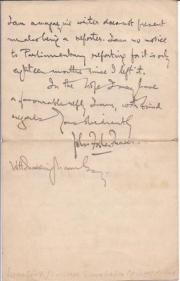 I am a magazine writer does not present
making a reporter. I am no novice
to Parliamentary reporting for it is only
eighteen months since I left it.
In the hope I may have
a favourable reply I am, with kind
regards
Yours obediently
John Foster Fraser
W H
Esq